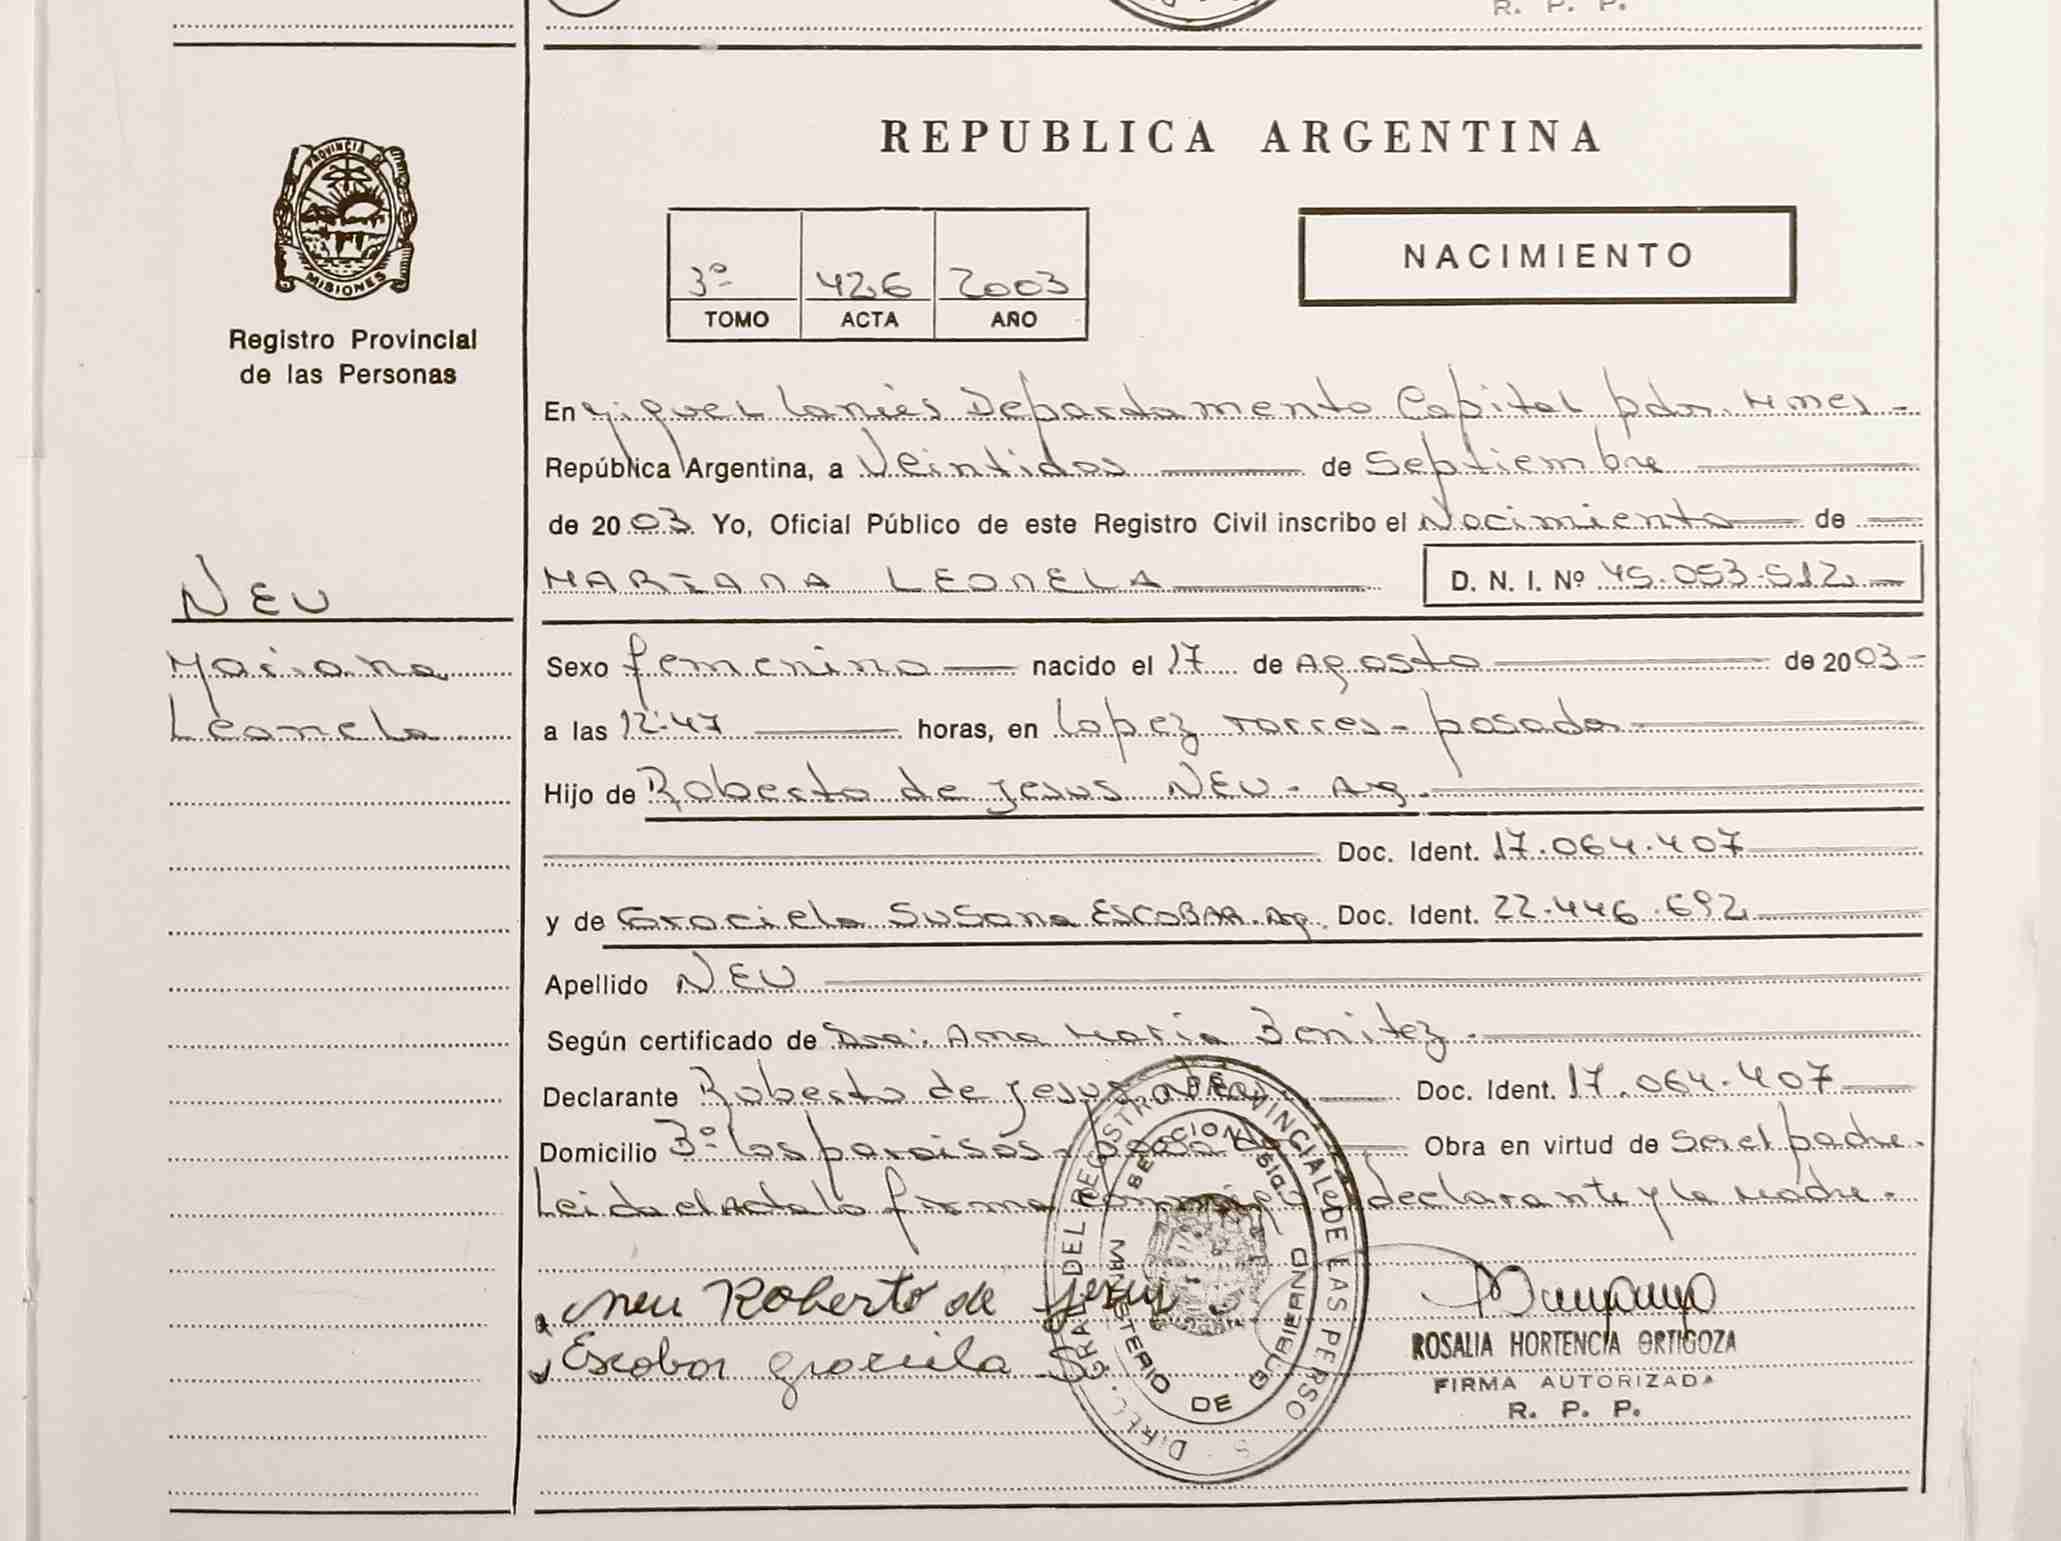 R. P. P.
PROVINCIA DE
MISIONES
Registro Provincial
de las Personas
REPUBLICA ARGENTINA
3º 426 2003
TOMO ACTA AÑO
NACIMIENTO
En Miguel Lanús Departamento Capital pdas. Mnes -
República Argentina, a Veintidos de Septiembre
de 2003 Yo, Oficial Público de este Registro Civil inscribo el Nacimiento de
MARIANA LEONELA D. N. I. Nº 45.053.512
NEU
Mariana
Leonela
Sexo femenino nacido el 17 de Agosto de 2003
a las 12:47 horas, en Lopez Torres - posadas
Hijo de Roberto de Jesus NEU - Arg.
Doc. Ident. 17.064.407
y de Graciela Susana ESCOBAR. Arg. Doc. Ident. 22.446.692
Apellido NEU
Según certificado de Dra: Ana Maria Benitez.
Declarante Roberto de Jesus NEU Doc. Ident. 17.064.407
Domicilio 3º los paraisos - posadas Obra en virtud de Ser el padre.
Leida el Acta la firma conmigo el declarante y la Madre.
neu Roberto de Jesus
Escobar graciela S.
DIREC. GRAL. DEL REGISTRO PROVINCIAL DE LAS PERSONAS
MINISTERIO DE GOBIERNO
ROSALIA HORTENCIA ORTIGOZA
FIRMA AUTORIZADA
R. P. P.